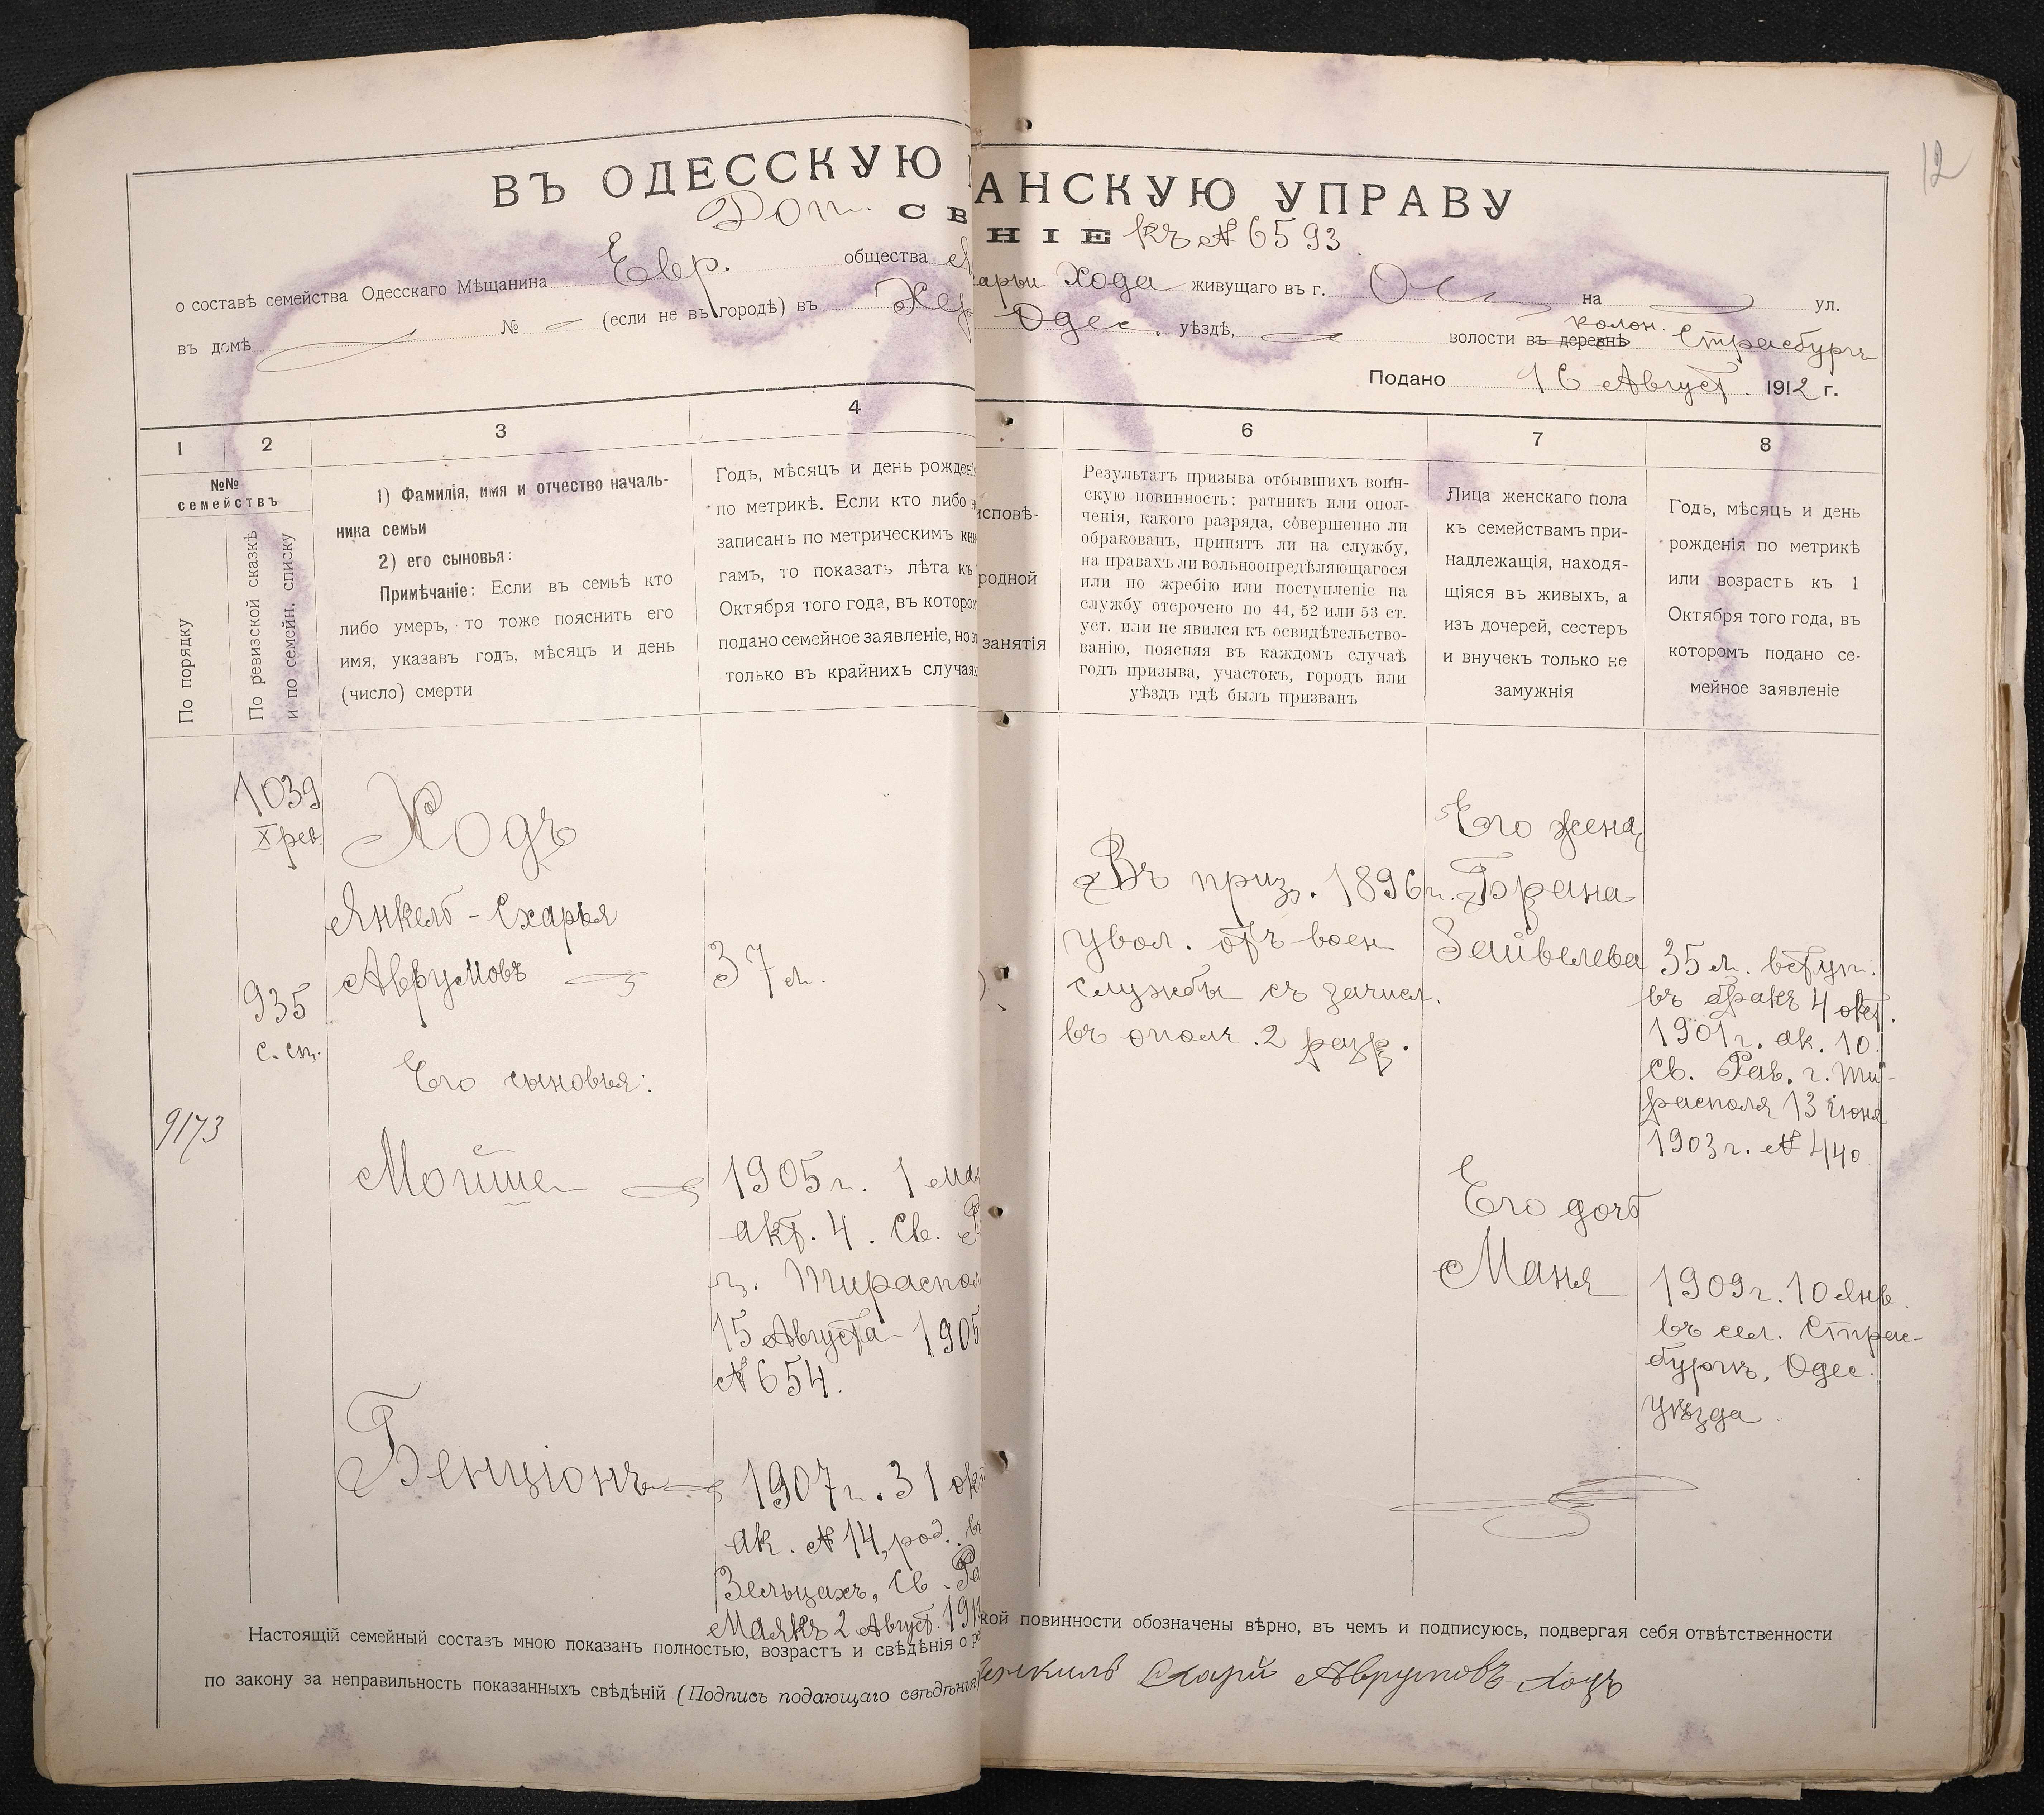 12
ВЪ ОДЕССКУЮ АНСКУЮ УПРАВУ
Доп. СВ НІЕ къ № 6593
о составѣ семейства Одесскаго Мѣщанина Евр. общества Я арьи Хода живущаго въ г. на ул.
въ домѣ № (если не въ городѣ) въ Хер Одес. уѣздѣ, волости въ деревнѣ колон. Страсбургъ
Подано 16 Август. 1912 г.
1
2
3
4
6
7
8
№№
семействъ
По порядку
По ревизской сказкѣ
и по семейн. списку
1) Фамилія, имя и отчество началь-
ника семьи
2) его сыновья:
Примѣчаніе: Если въ семьѣ кто
либо умеръ, то тоже пояснить его
имя, указавъ годъ, мѣсяцъ и день
(число) смерти
Годъ, мѣсяцъ и день рожден
по метрикѣ. Если кто либо н
записанъ по метрическимъ кни
гамъ, то показать лѣта къ
Октября того года, въ которо
подано семейное заявленіе, но э
только въ крайнихъ случая
исповѣ-
родной
занятія
Результатъ призыва отбывшихъ воин-
скую повинность: ратникъ или опол-
ченія, какого разряда, совершенно ли
обракованъ, принятъ ли на службу,
на правахъ ли вольноопредѣляющагося
или по жребію или поступленіе на
службу отсрочено по 44, 52 или 53 ст.
уст. или не явился къ освидѣтельство-
ванію, поясняя въ каждомъ случаѣ
годъ призыва, участокъ, городъ или
уѣздъ гдѣ былъ призванъ
Лица женскаго пола
къ семействамъ при-
надлежащія, находя-
щіяся въ живыхъ, а
изъ дочерей, сестеръ
и внучекъ только не
замужнія
Годъ, мѣсяцъ и день
рожденія по метрикѣ
или возрастъ къ 1
Октября того года, въ
которомъ подано се-
мейное заявленіе
9173
1039
X рев.
935
с. сп.
Ходъ
Янкель-Схарья
Аврумовъ
Его сыновья:
Мойше
Бенціонъ
37 л.
1905 г. 1 мая
акт. 4. Св.
г. Тираспол
15 Августа 1905
№ 654.
1907 г. 31 ок
ак. № 14, род. в
Зельцахъ, Св. Ра
Маякъ 2 Август. 191
Въ приз. 1896 г.
увол. отъ воен
службы съ зачисл.
въ ополч. 2 разр.
Его жена
Брана
Зайвелева
Его дочь
Маня
35 л. вступ.
въ бракъ 4 окт.
1901 г. ак. 10.
Св. Рав. г. Ти-
располя 13 іюня
1903 г. № 440
1909 г. 10 Янв.
въ сел. Страс-
бургъ, Одес.
уѣзда
Настоящій семейный составъ мною показанъ полностью, возрастъ и свѣдѣнія о р кой повинности обозначены вѣрно, въ чемъ и подписуюсь, подвергая себя отвѣтственности
по закону за неправильность показанныхъ свѣдѣній (Подпись подающаго свѣдѣнія) Аврумовъ Ходъ